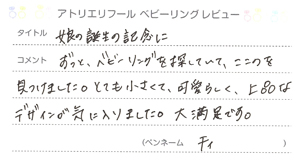 アトリエリフール ベビーリングレビュー
タイトル 娘の誕生の記念に
コメント ずっと、ベビーリングを探していて、ここつを
見つけました。とても小さくて、可愛らしく、上品な
デザインが気に入りました。大満足です。
(ペンネーム チィ )